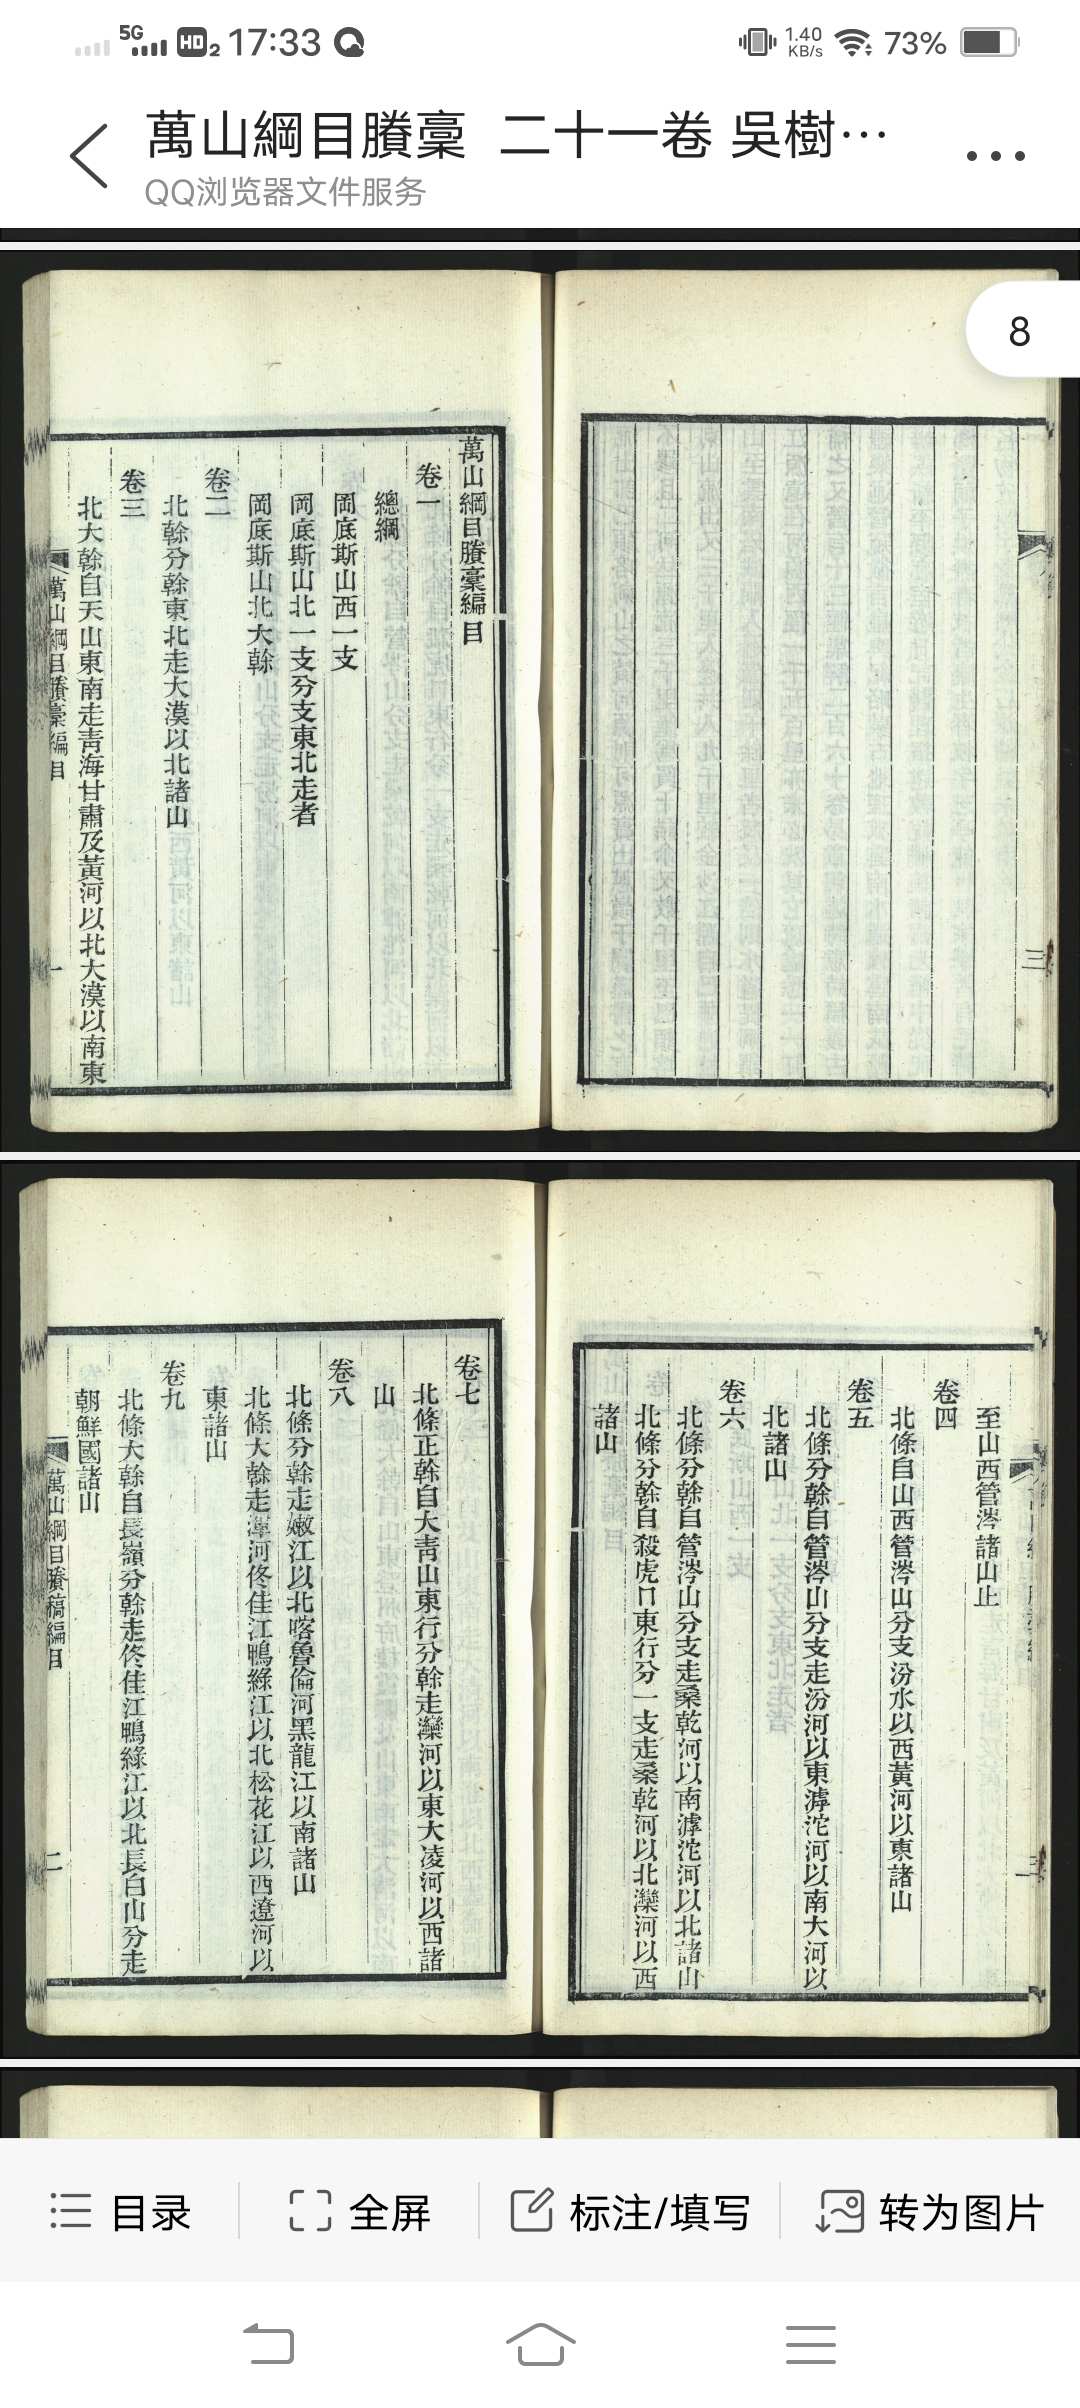 5G
HD 2
17:33
1.40
KB/s
73%
萬山綱目賸稾 二十一卷 吳樹…
QQ浏览器文件服务
8
三
萬山綱目賸稾編目
卷一
總綱
岡底斯山西一支
岡底斯山北一支分支東北走者
岡底斯山北大幹
卷二
北幹分幹東北走大漠以北諸山
卷三
北大幹自天山東南走青海甘肅及黃河以北大漠以南東
萬山綱目賸稾編目
一
至山西管涔諸山止
卷四
北條自山西管涔山分支汾水以西黃河以東諸山
卷五
北條分幹自管涔山分支走汾河以東滹沱河以南大河以
北諸山
卷六
北條分幹自管涔山分支走桑乾河以南滹沱河以北諸山
北條分幹自殺虎口東行分一支走桑乾河以北灤河以西
諸山
卷七
北條正幹自大青山東行分幹走灤河以東大凌河以西諸
山
卷八
北條分幹走嫩江以北喀魯倫河黑龍江以南諸山
北條大幹走渾河佟佳江鴨綠江以北松花江以西遼河以
東諸山
卷九
北條大幹自長嶺分幹走佟佳江鴨綠江以北長白山分走
朝鮮國諸山
萬山綱目賸稿編目
二
目录
全屏
标注/填写
转为图片